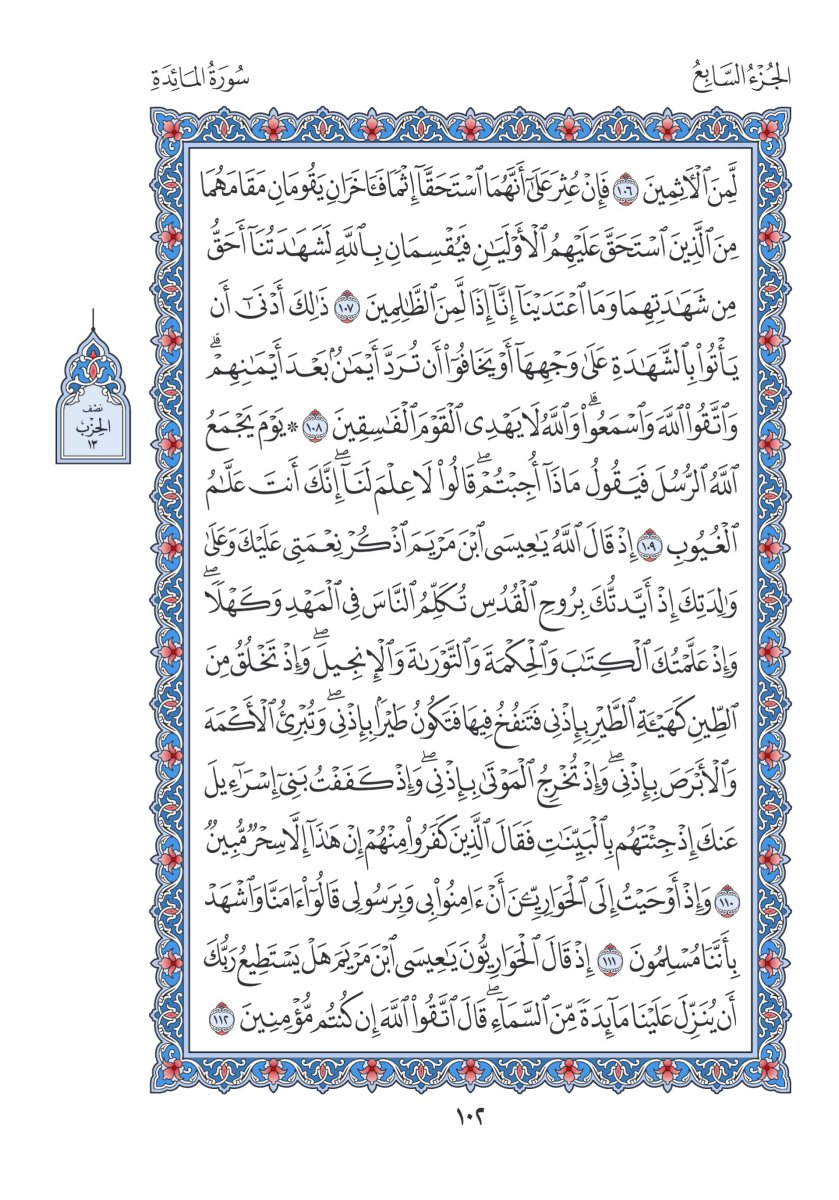 الجُزْءُ السَّابِعُ
سُورَةُ المَائِدَةِ
لَّمِنَ ٱلْأٓثِمِينَ ١٠٦ فَإِنْ عُثِرَ عَلَىٰٓ أَنَّهُمَا ٱسْتَحَقَّآ إِثْمًا فَـَٔاخَرَانِ يَقُومَانِ مَقَامَهُمَا
مِنَ ٱلَّذِينَ ٱسْتَحَقَّ عَلَيْهِمُ ٱلْأَوْلَيَـٰنِ فَيُقْسِمَانِ بِٱللَّهِ لَشَهَـٰدَتُنَآ أَحَقُّ
مِن شَهَـٰدَتِهِمَا وَمَا ٱعْتَدَيْنَآ إِنَّآ إِذًا لَّمِنَ ٱلظَّـٰلِمِينَ ١٠٧ ذَٰلِكَ أَدْنَىٰٓ أَن
يَأْتُوا۟ بِٱلشَّهَـٰدَةِ عَلَىٰ وَجْهِهَآ أَوْ يَخَافُوٓا۟ أَن تُرَدَّ أَيْمَـٰنٌۢ بَعْدَ أَيْمَـٰنِهِمْ ۗ
وَٱتَّقُوا۟ ٱللَّهَ وَٱسْمَعُوا۟ ۗ وَٱللَّهُ لَا يَهْدِى ٱلْقَوْمَ ٱلْفَـٰسِقِينَ ١٠٨ * يَوْمَ يَجْمَعُ
ٱللَّهُ ٱلرُّسُلَ فَيَقُولُ مَاذَآ أُجِبْتُمْ ۖ قَالُوا۟ لَا عِلْمَ لَنَآ ۖ إِنَّكَ أَنتَ عَلَّـٰمُ
ٱلْغُيُوبِ ١٠٩ إِذْ قَالَ ٱللَّهُ يَـٰعِيسَى ٱبْنَ مَرْيَمَ ٱذْكُرْ نِعْمَتِى عَلَيْكَ وَعَلَىٰ
وَٰلِدَتِكَ إِذْ أَيَّدتُّكَ بِرُوحِ ٱلْقُدُسِ تُكَلِّمُ ٱلنَّاسَ فِى ٱلْمَهْدِ وَكَهْلًا ۖ
وَإِذْ عَلَّمْتُكَ ٱلْكِتَـٰبَ وَٱلْحِكْمَةَ وَٱلتَّوْرَىٰةَ وَٱلْإِنجِيلَ ۖ وَإِذْ تَخْلُقُ مِنَ
ٱلطِّينِ كَهَيْـَٔةِ ٱلطَّيْرِ بِإِذْنِى فَتَنفُخُ فِيهَا فَتَكُونُ طَيْرًۢا بِإِذْنِى ۖ وَتُبْرِئُ ٱلْأَكْمَهَ
وَٱلْأَبْرَصَ بِإِذْنِى ۖ وَإِذْ تُخْرِجُ ٱلْمَوْتَىٰ بِإِذْنِى ۖ وَإِذْ كَفَفْتُ بَنِىٓ إِسْرَٰٓءِيلَ
عَنكَ إِذْ جِئْتَهُم بِٱلْبَيِّنَـٰتِ فَقَالَ ٱلَّذِينَ كَفَرُوا۟ مِنْهُمْ إِنْ هَـٰذَآ إِلَّا سِحْرٌ مُّبِينٌ
١١٠ وَإِذْ أَوْحَيْتُ إِلَى ٱلْحَوَارِيِّـۧنَ أَنْ ءَامِنُوا۟ بِى وَبِرَسُولِى قَالُوٓا۟ ءَامَنَّا وَٱشْهَدْ
بِأَنَّنَا مُسْلِمُونَ ١١١ إِذْ قَالَ ٱلْحَوَارِيُّونَ يَـٰعِيسَى ٱبْنَ مَرْيَمَ هَلْ يَسْتَطِيعُ رَبُّكَ
أَن يُنَزِّلَ عَلَيْنَا مَآئِدَةً مِّنَ ٱلسَّمَآءِ ۖ قَالَ ٱتَّقُوا۟ ٱللَّهَ إِن كُنتُم مُّؤْمِنِينَ ١١٢
نصف
الحِزْبُ
١٣
١٠٢